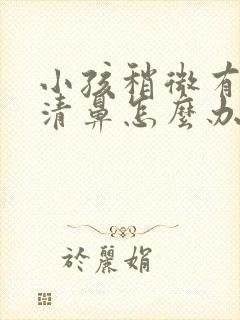 小孩稍微有
清鼻怎麼办
於麗娟